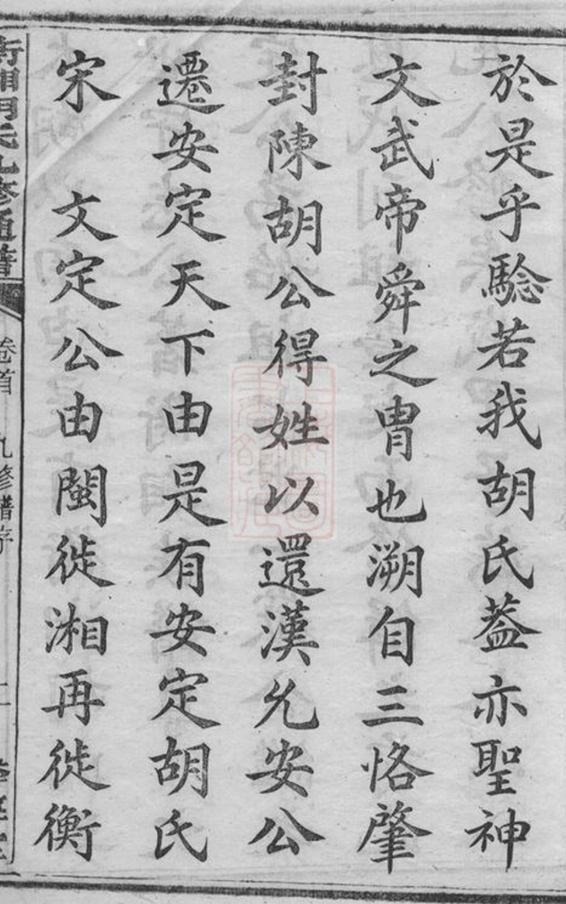 於是乎騐若我胡氏葢亦聖神
文武帝舜之胄也溯自三恪肇
封陳胡公得姓以還漢允安公
遷安定天下由是有安定胡氏
宋 文定公由閩徙湘再徙衡
衡湘胡氏九修通譜 卷首 九修譜序 二